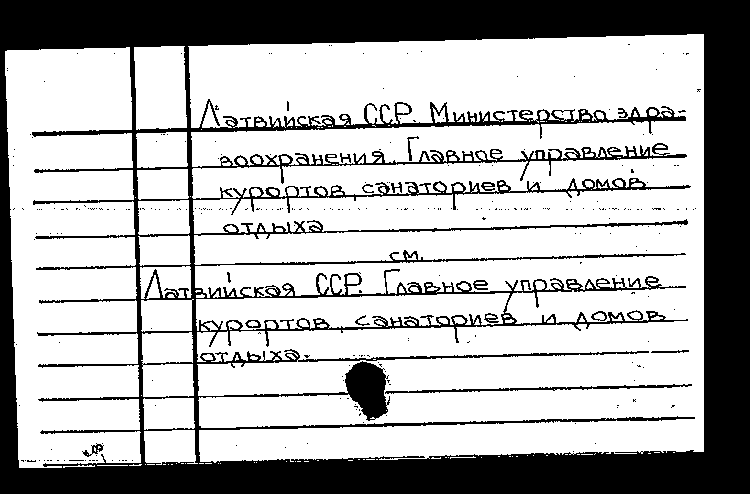 Латвийская ССР. Министерство здра-
воохранения. Главное управление
курортов, санаториев и домов
отдыха
см.
Латвийская ССР. Главное управление
курортов, санаториев и домов
отдыха.